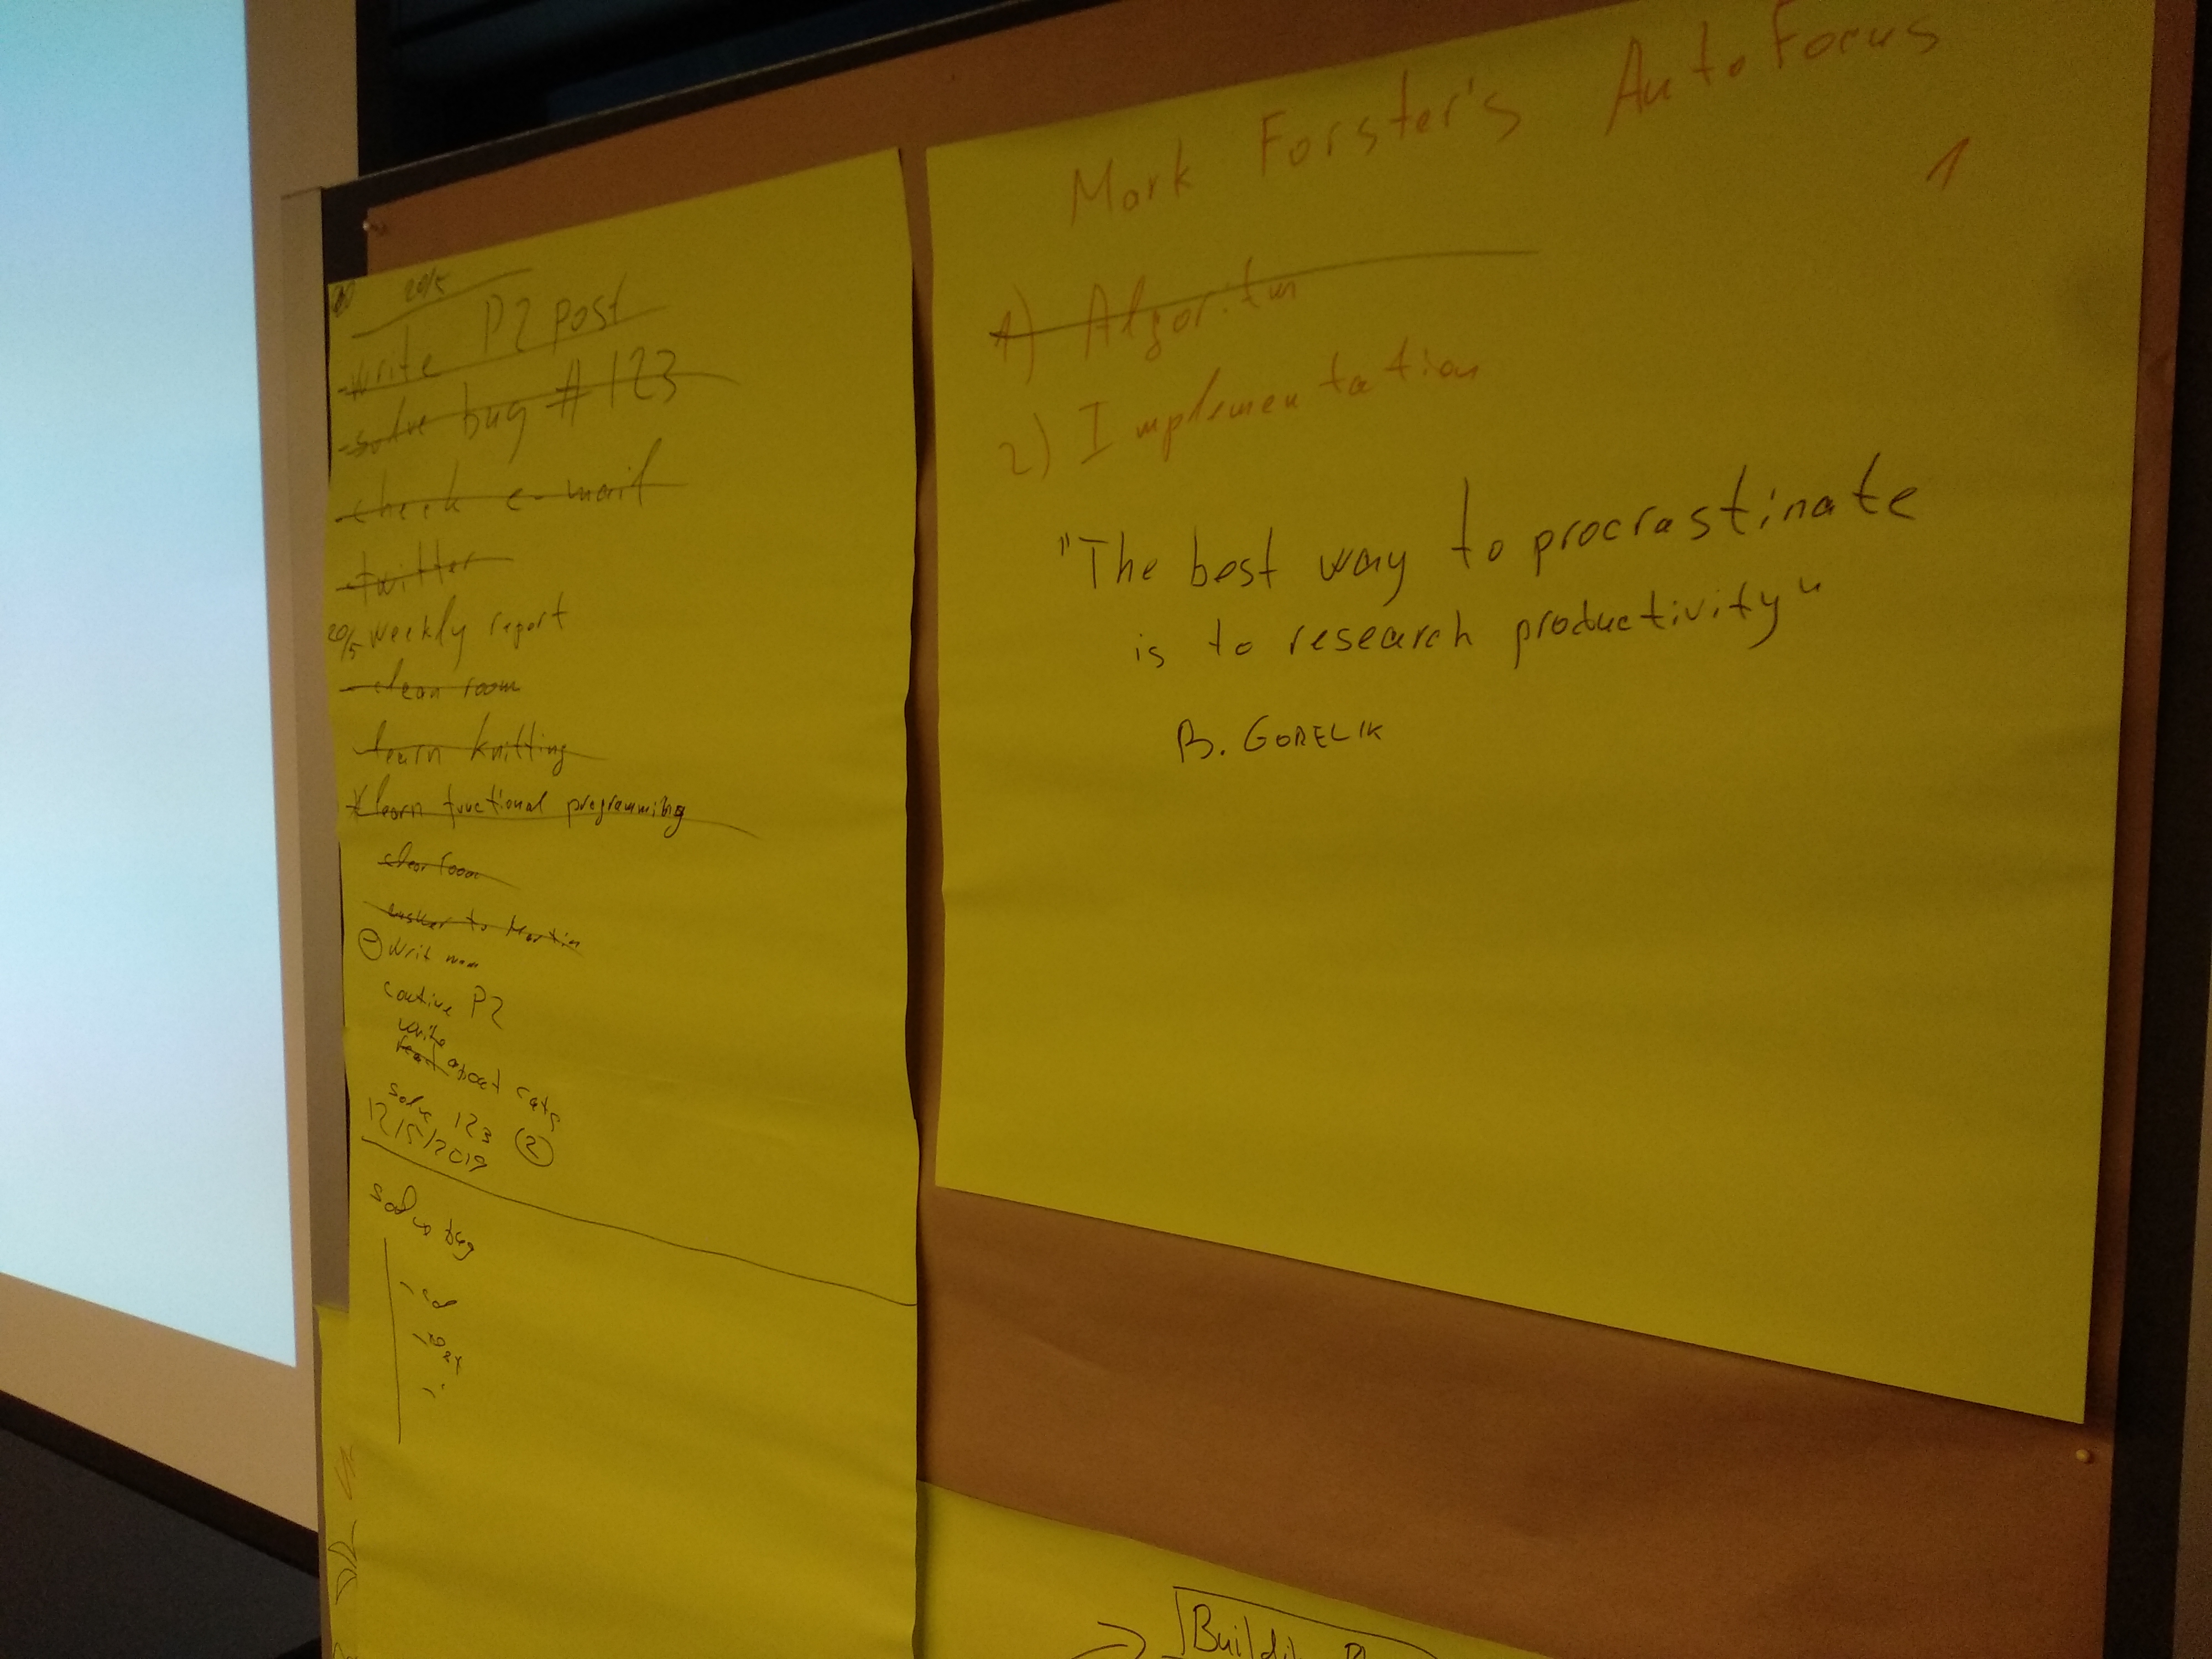 20/5
- write P2 post
- solve bug #123
- check e-mail
- twitter
20/5 weekly report
- clean room
learn knitting
learn functional programming
clear room
to Martin
Writ
P2
write
about cats
solve 123 (2)
12/5/2019
solve bug
Mark Forster's AutoFocus
1
1) Algoritm
2) Implementation
"The best way to procrastinate
is to research productivity"
B. GORELIK